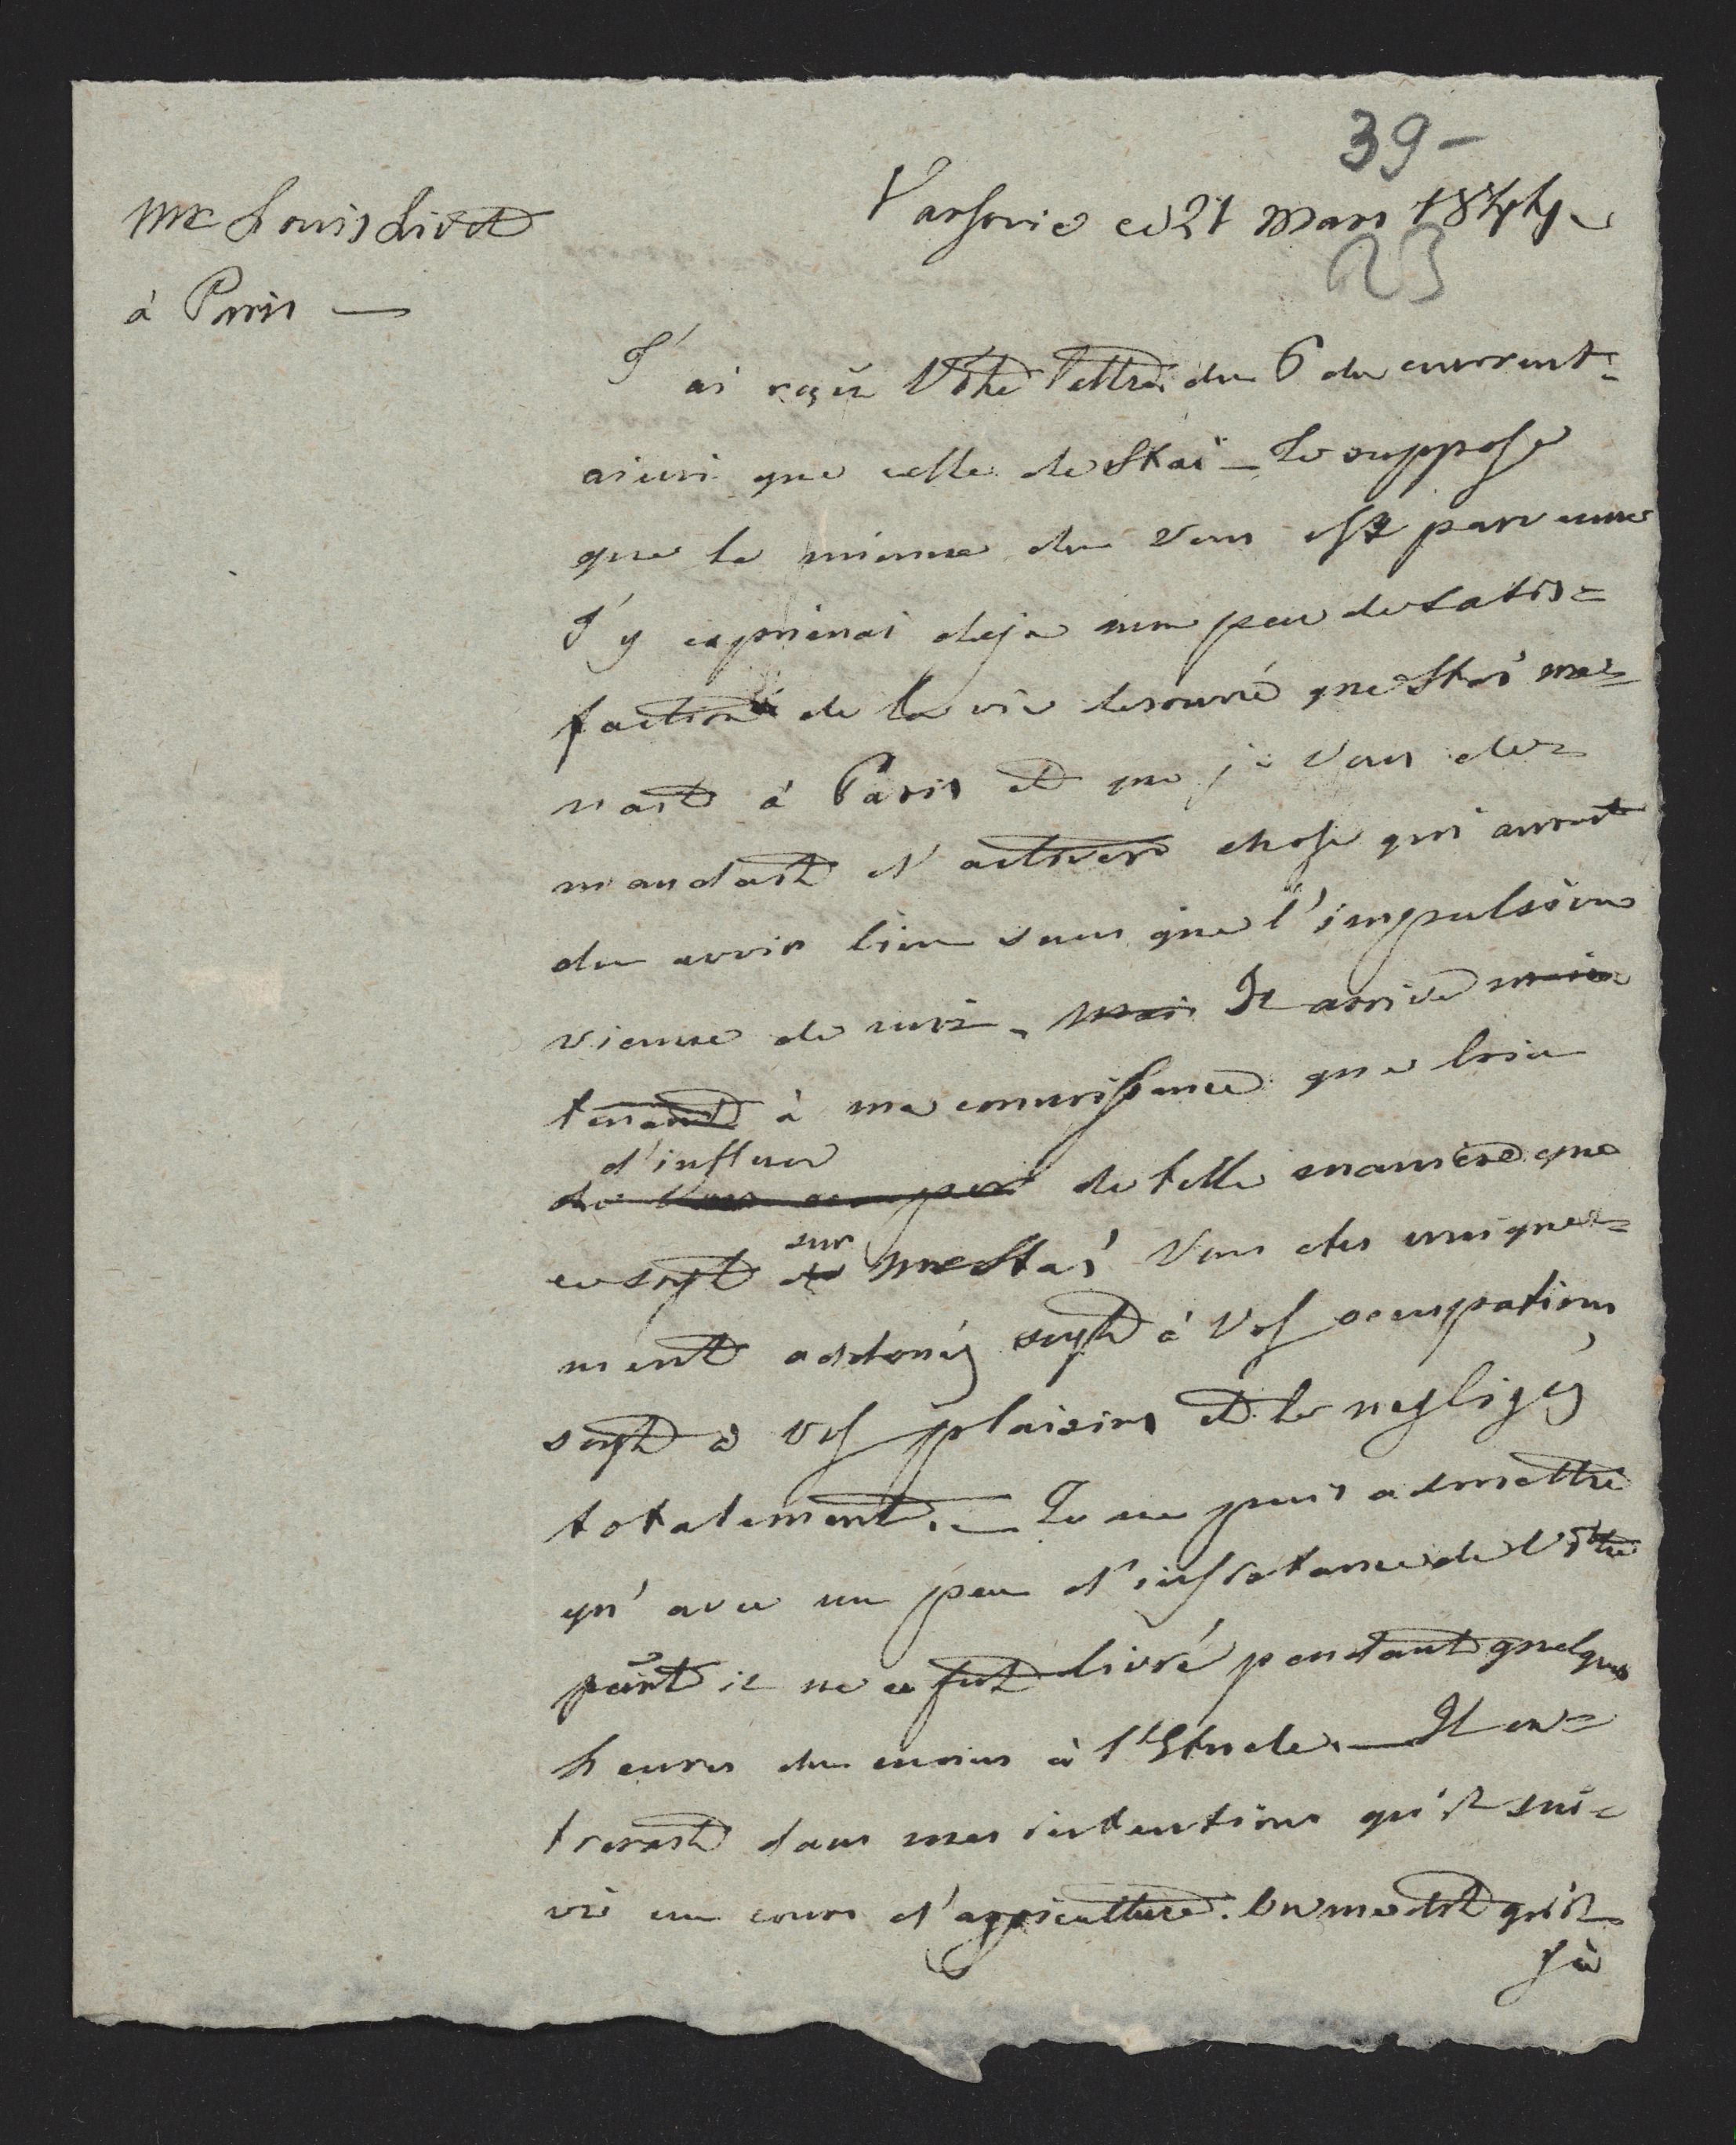 39-
Mr Louis Livet
Varsovie ce 21 Mars 1844
23
à Paris —
J'ai reçu Votre lettre du 6 du currant
ainsi que celle de Stas – Je suppose
que la mienne du vous est parvenue
J'y exprimai deja mon peu de satis=
faction de la vie desouvré que Stas me=
nait à Paris et que je vous de=
mandait d'activer chose qui auroit
du avoir lieu sans que l'impulsion
vienne de moi. Mais Il arrive main
tenant à ma connoissance que loin
d'influer
de vous occuper de telle maniere que
sur
ce soyt de Mr Stas Vous etes unique=
ment addonés soyt à Vos occupations
soyt à vos plaisirs et le negligés
totalement. — Je ne puis admettre
qu'avec un peu d'insistance de Votre
part il ne se fut livré pendant quelques
heures du moins à l'Etude. — Il en=
troroit dans mes intentions qu'il sui=
vie un cours d'agriculture. On me dit qu'il